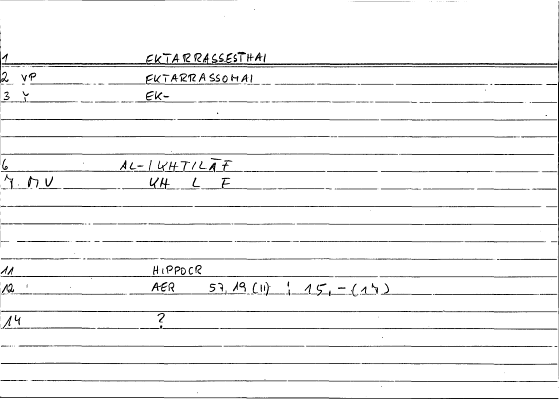 1 EKTARRASSESTHAI
2 VP EKTARRASSOMAI
3 Y EK-
6 AL-IKHTILĀF
7 MV KH L F
11 HIPPOCR
12 AER 57,19 (11) ; 15,-(17)
14 ?